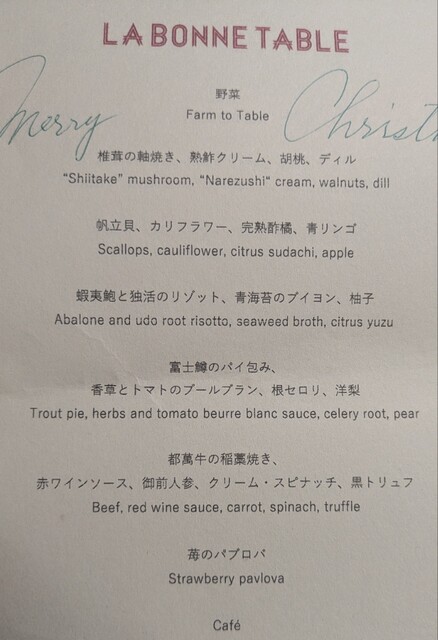 LA BONNE TABLE
Merry Christ
野菜
Farm to Table
椎茸の軸焼き、熟鮓クリーム、胡桃、ディル
“Shiitake” mushroom, “Narezushi“ cream, walnuts, dill
帆立貝、カリフラワー、完熟酢橘、青リンゴ
Scallops, cauliflower, citrus sudachi, apple
蝦夷鮑と独活のリゾット、青海苔のブイヨン、柚子
Abalone and udo root risotto, seaweed broth, citrus yuzu
富士鱒のパイ包み、
香草とトマトのブールブラン、根セロリ、洋梨
Trout pie, herbs and tomato beurre blanc sauce, celery root, pear
都萬牛の稲藁焼き、
赤ワインソース、御前人参、クリーム・スピナッチ、黒トリュフ
Beef, red wine sauce, carrot, spinach, truffle
苺のパブロバ
Strawberry pavlova
Café